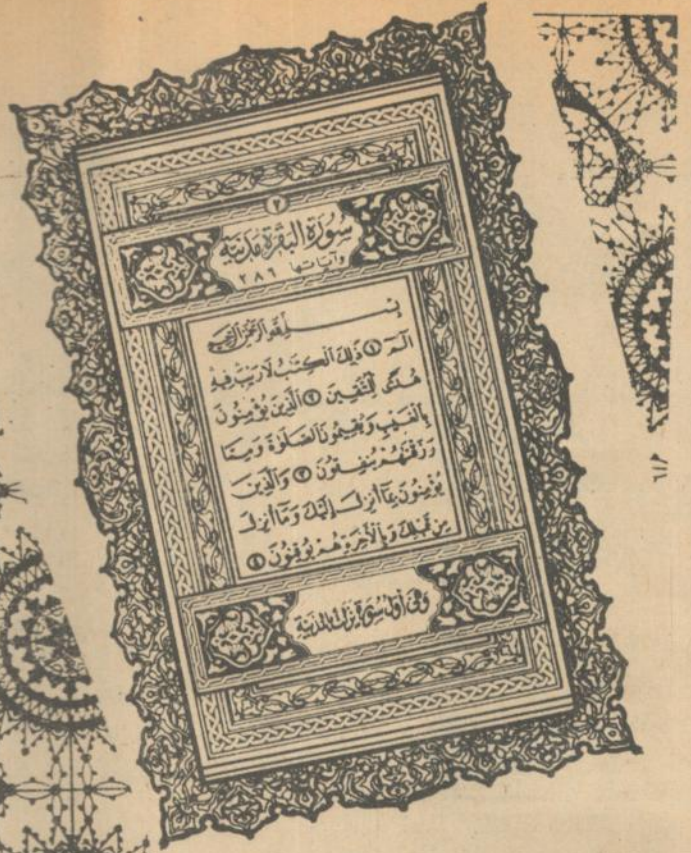 ٢
سُورَةُ البَقَرَةِ مَدَنِيَّة
وَآيَاتُهَا ٢٨٦
بِسْمِ اللَّهِ الرَّحْمَٰنِ الرَّحِيمِ
الٓمٓ ١ ذَٰلِكَ الْكِتَٰبُ لَا رَيْبَ فِيهِ
هُدًى لِّلْمُتَّقِينَ ٢ الَّذِينَ يُؤْمِنُونَ
بِالْغَيْبِ وَيُقِيمُونَ الصَّلَوٰةَ وَمِمَّا
رَزَقْنَٰهُمْ يُنفِقُونَ ٣ وَالَّذِينَ
يُؤْمِنُونَ بِمَا أُنزِلَ إِلَيْكَ وَمَا أُنزِلَ
مِن قَبْلِكَ وَبِالْآخِرَةِ هُمْ يُوقِنُونَ ٤
وَهِيَ أَوَّلُ سُورَةٍ نَزَلَتْ بِالمَدِينَةِ